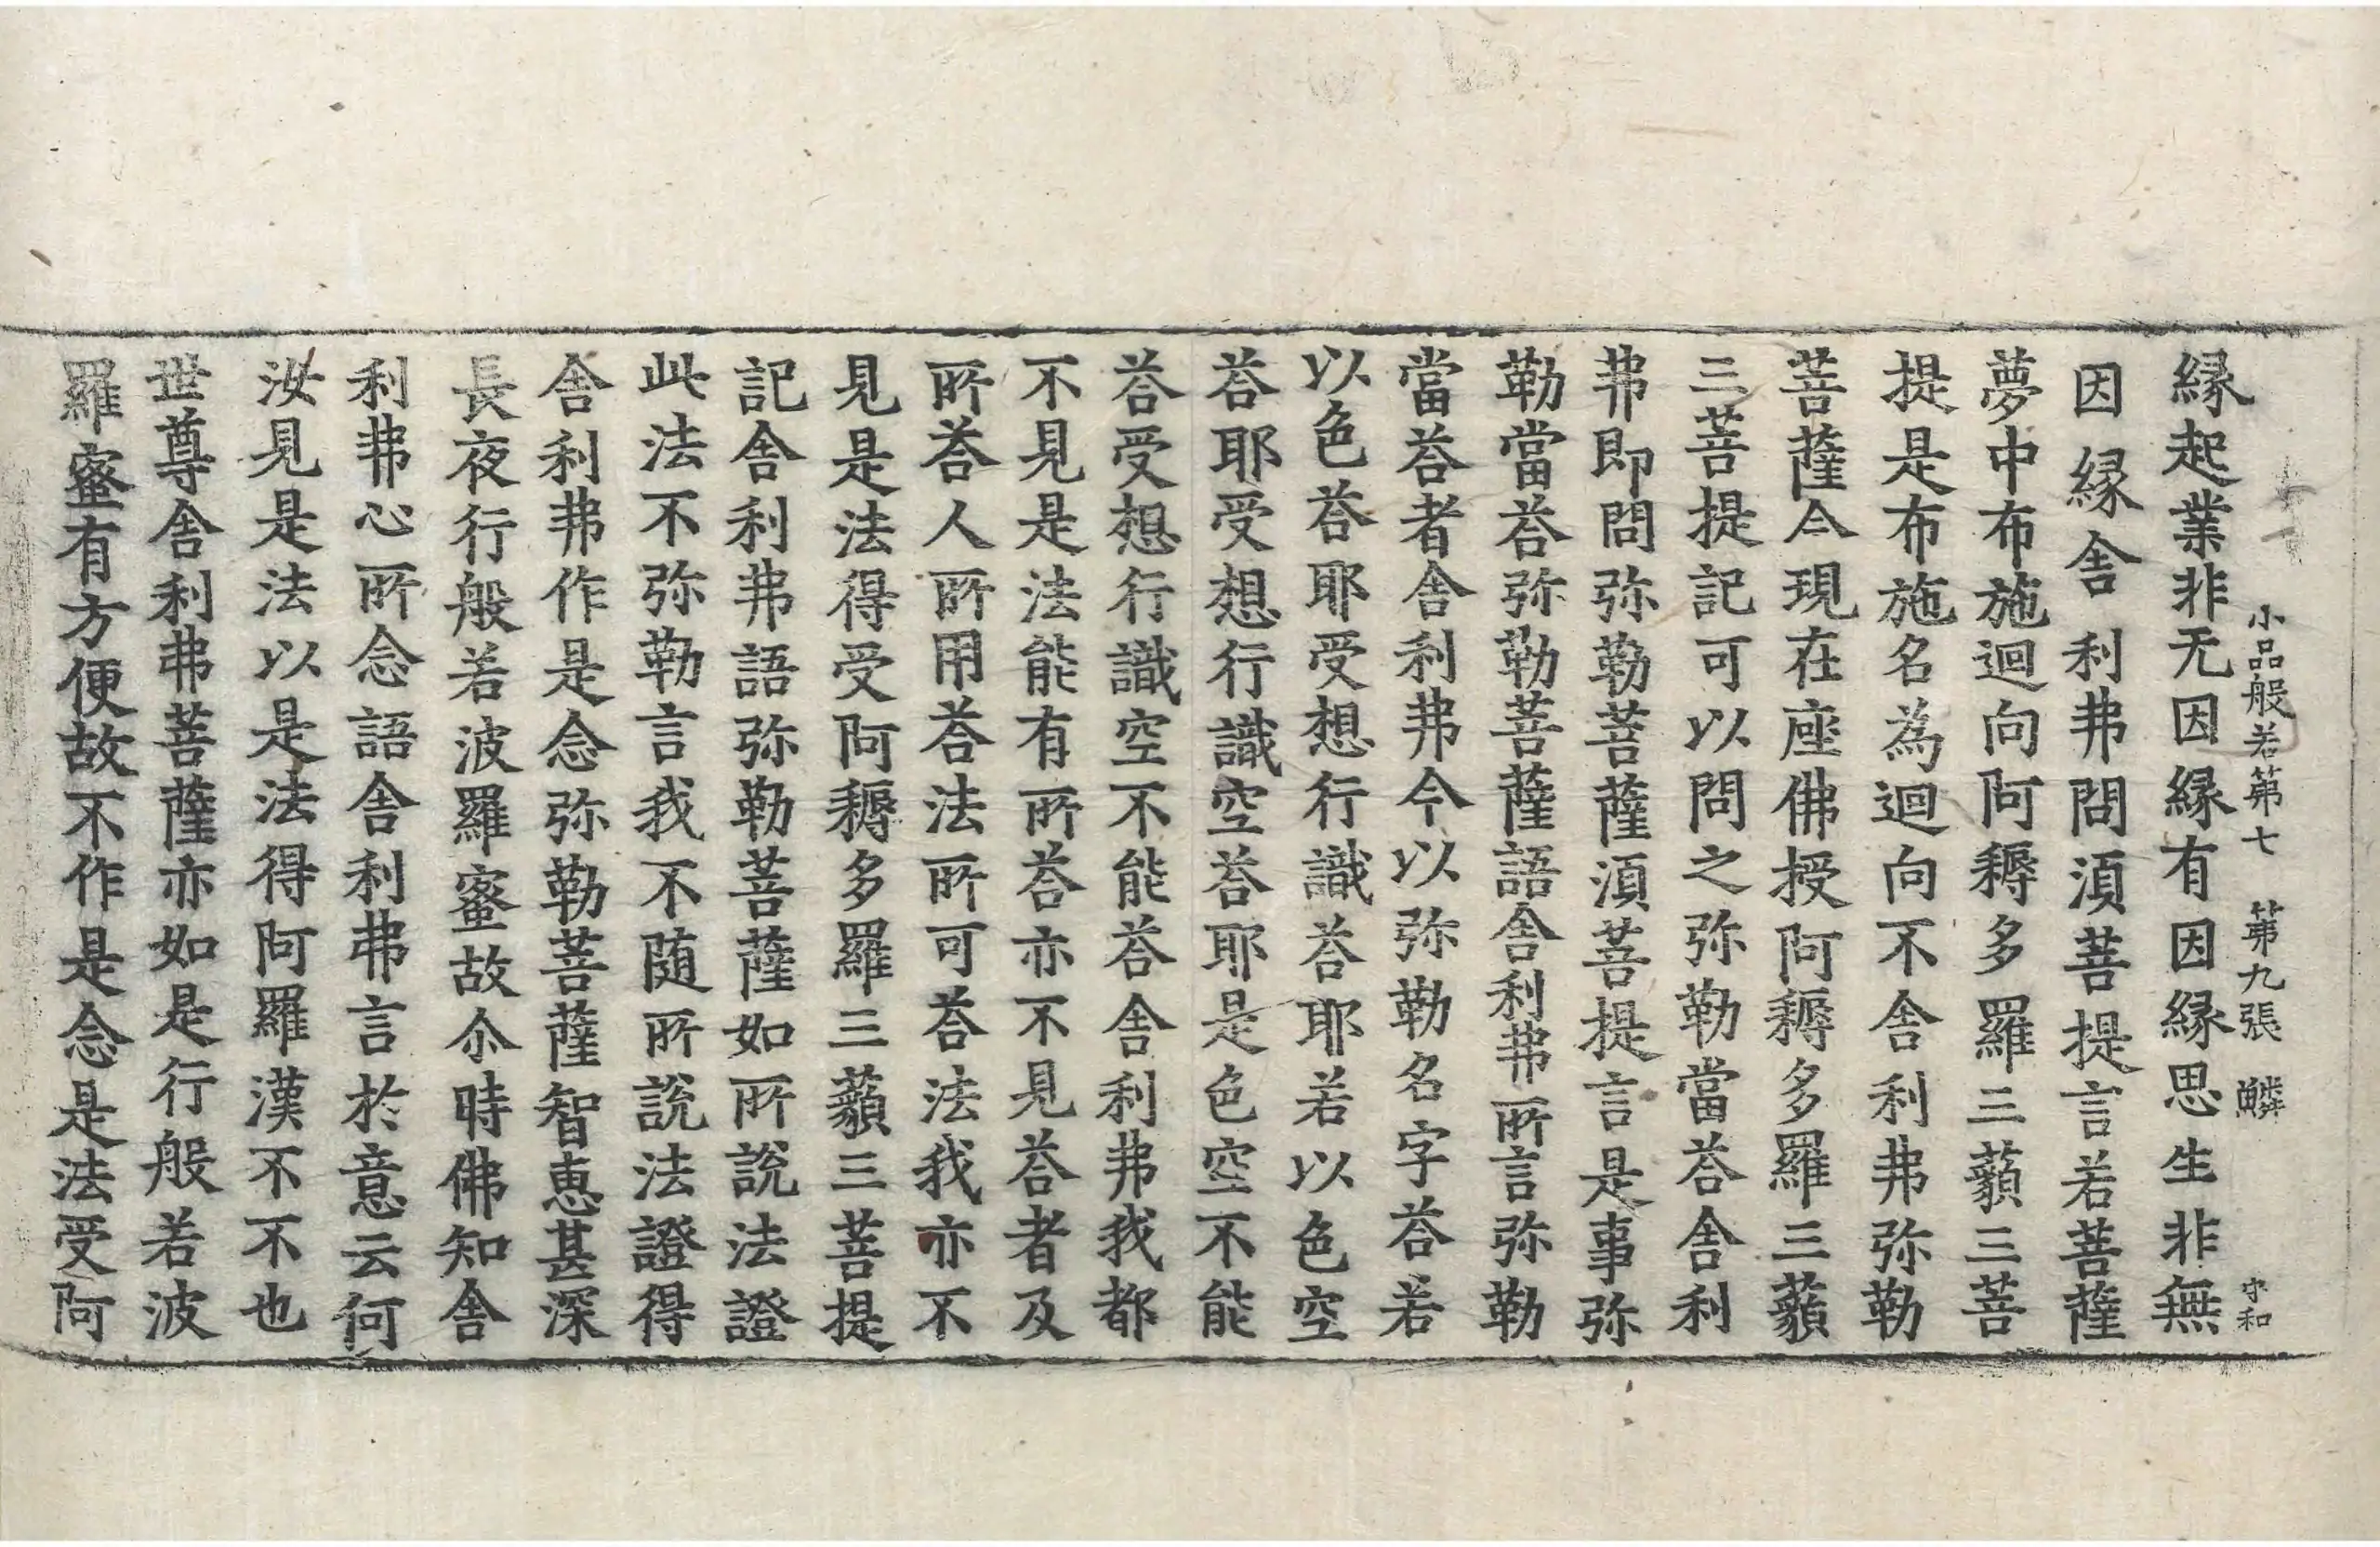 小品般若第七　第九張　鱗　守和
縁起業非无因縁有因縁思生非無
因縁舎利弗問湏菩提言若菩薩
夢中布施迴向阿耨多羅三藐三菩
提是布施名為迴向不舎利弗弥勒
菩薩今現在座佛授阿耨多羅三藐
三菩提記可以問之弥勒當荅舎利
弗即問弥勒菩薩湏菩提言是事弥
勒當荅弥勒菩薩語舎利弗所言弥勒
當荅者舎利弗今以弥勒名字荅若
以色荅耶受想行識荅耶若以色空
荅耶受想行識空荅耶是色空不能
荅受想行識空不能荅舎利弗我都
不見是法能有所荅亦不見荅者及
所荅人所用荅法所可荅法我亦不
見是法得受阿耨多羅三藐三菩提
記舎利弗語弥勒菩薩如所說法證
此法不弥勒言我不随所說法證得
舎利弗作是念弥勒菩薩智恵甚深
長夜行般若波羅蜜故尒時佛知舎
利弗心所念語舎利弗言於意云何
汝見是法以是法得阿羅漢不不也
世尊舎利弗菩薩亦如是行般若波
羅蜜有方便故不作是念是法受阿